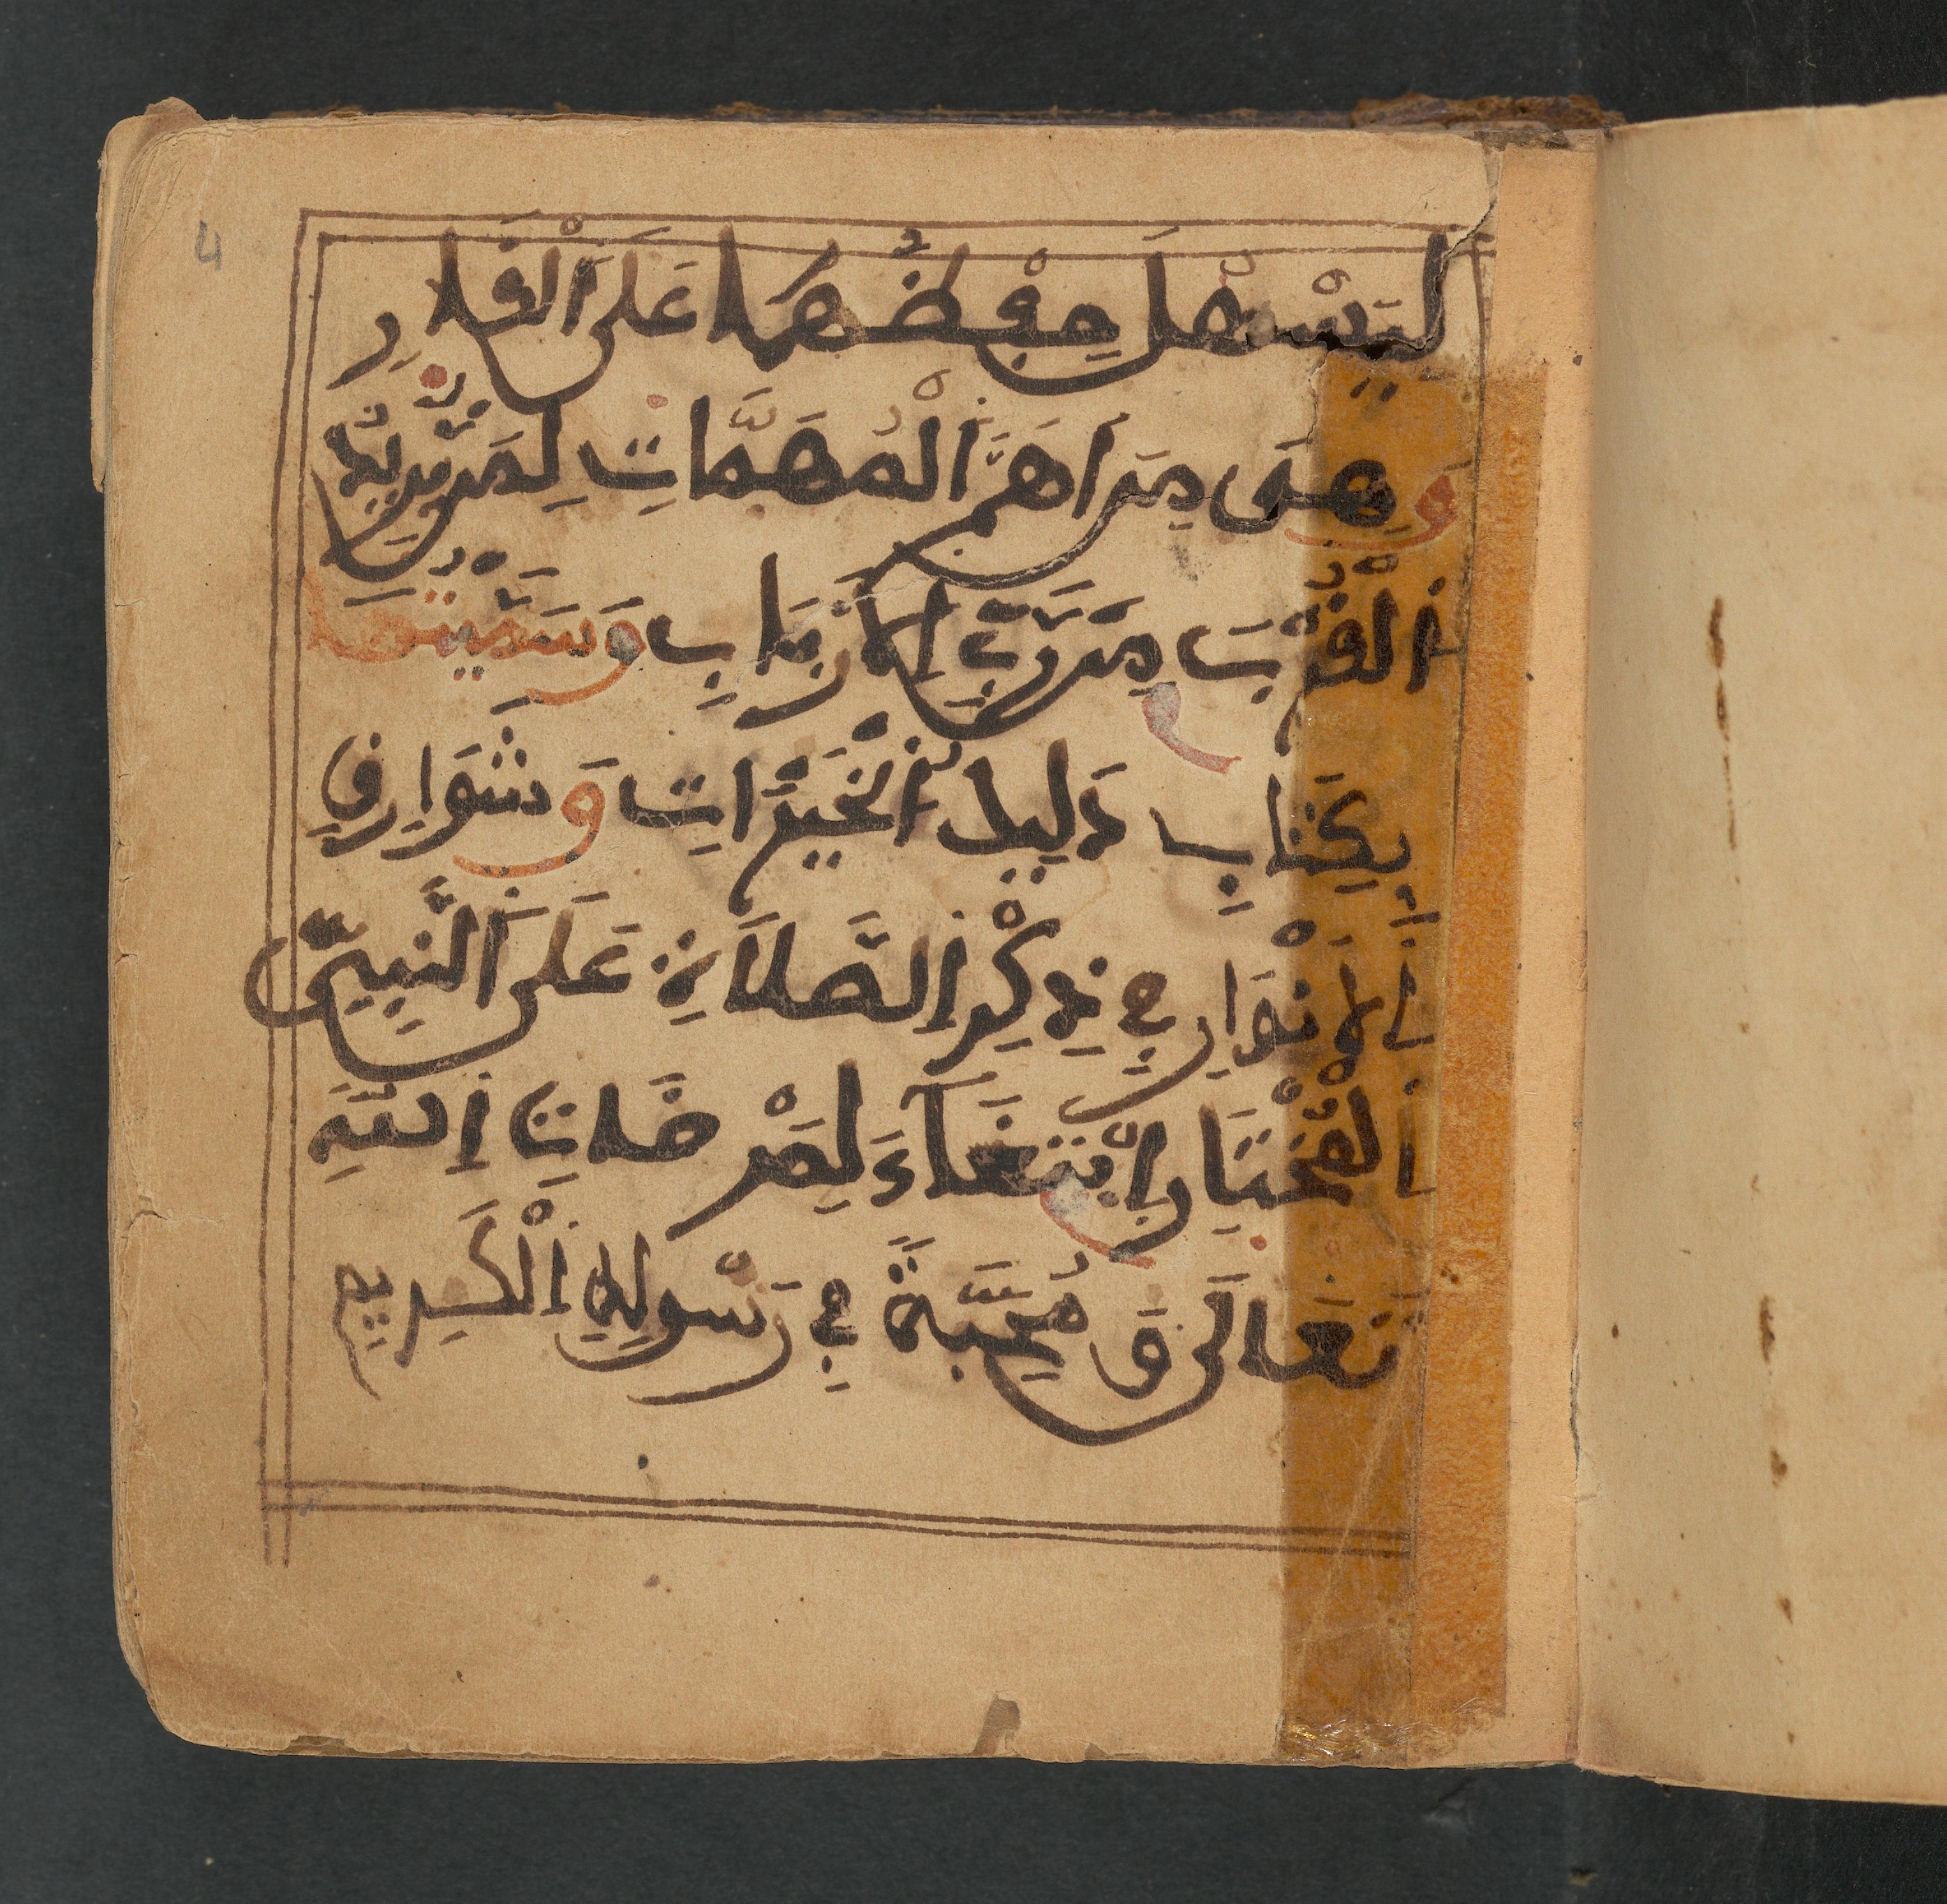 4
لِيَسْهُلَ حِفْظُهَا عَلَى الْقَارِ
وَهِيَ مِنْ أَهَمِّ الْمُهِمَّاتِ لِمَنْ يُرِيدُ
الْقُرْبَ مِنْ رَبِّ الْأَرْبَابِ وَسَمَّيْتُهُ
بِكِتَابِ دَلِيلِ الْخَيْرَاتِ وَشَوَارِقِ
الْأَنْوَارِ فِي ذِكْرِ الصَّلَاةِ عَلَى النَّبِيِّ
الْمُخْتَارِ ابْتِغَاءً لِمَرْضَاتِ اللَّهِ
تَعَالَى وَمُحَبَّةً فِي رَسُولِهِ الْكَرِيمِ